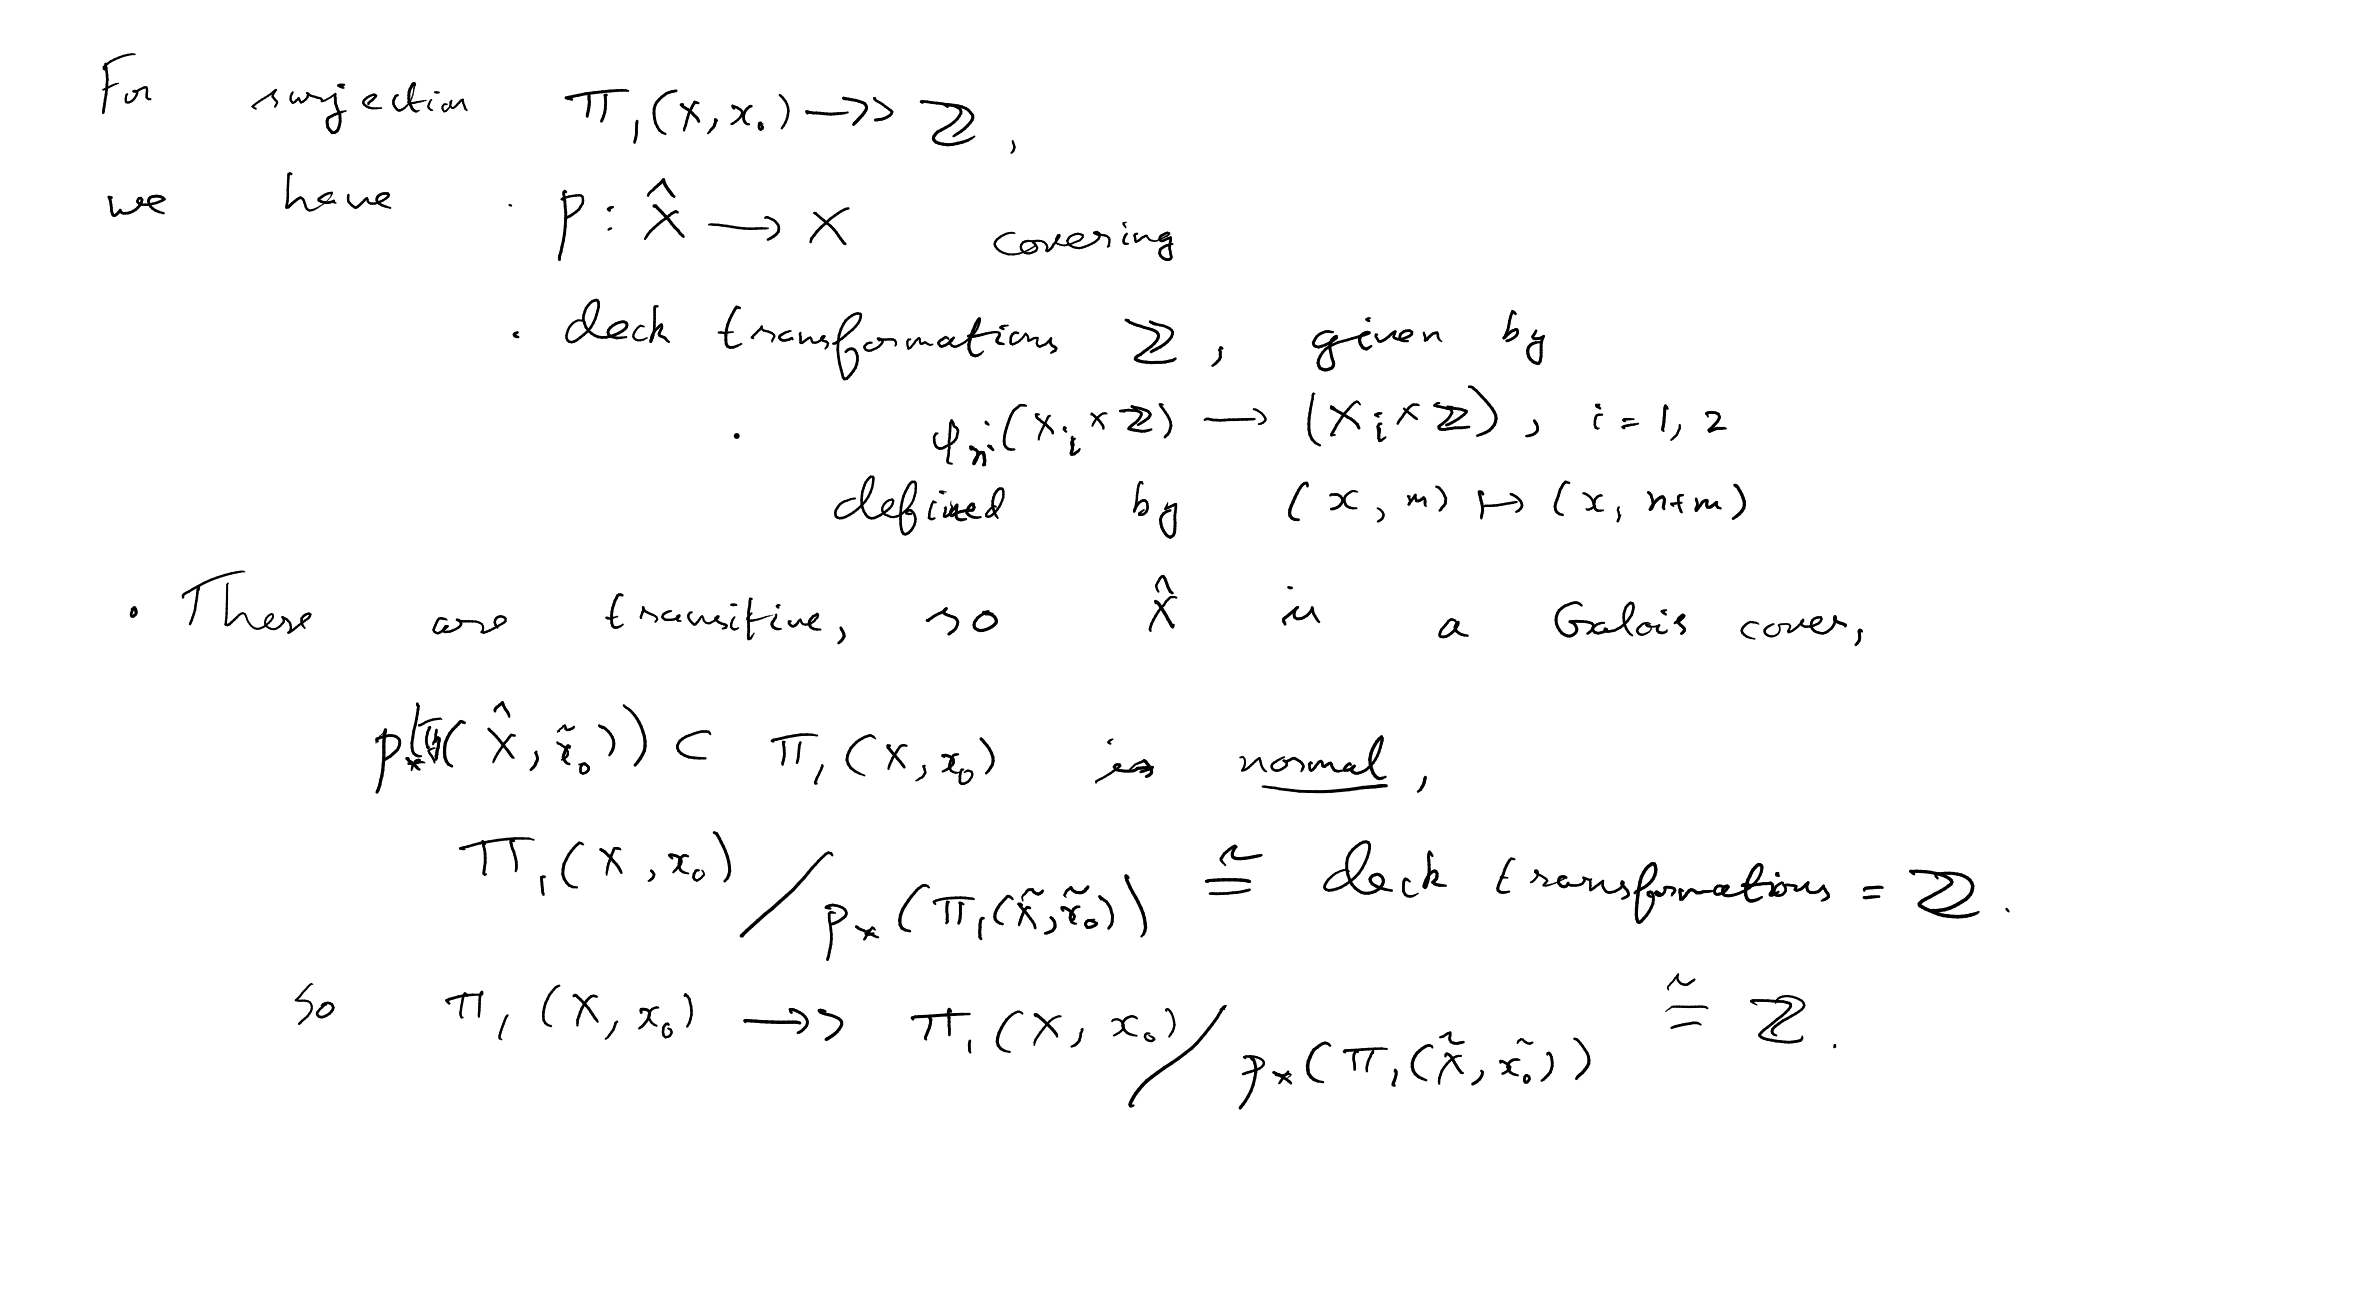 For surjection π₁(X, x₀) ↠ ℤ,
we have · p : X̂ → X covering
· deck transformations ℤ, given by
· φₙ : (Xᵢ × ℤ) → (Xᵢ × ℤ), i = 1, 2
defined by (x, m) ↦ (x, n+m)
· These are transitive, so X̂ is a Galois cover,
p⁎(π₁(X̂, x̃₀)) ⊂ π₁(X, x₀) is normal,
π₁(X, x₀) / p⁎(π₁(X̃, x̃₀)) ≅ deck transformations = ℤ.
So π₁(X, x₀) ↠ π₁(X, x₀) / p⁎(π₁(X̃, x̃₀)) ≅ ℤ.